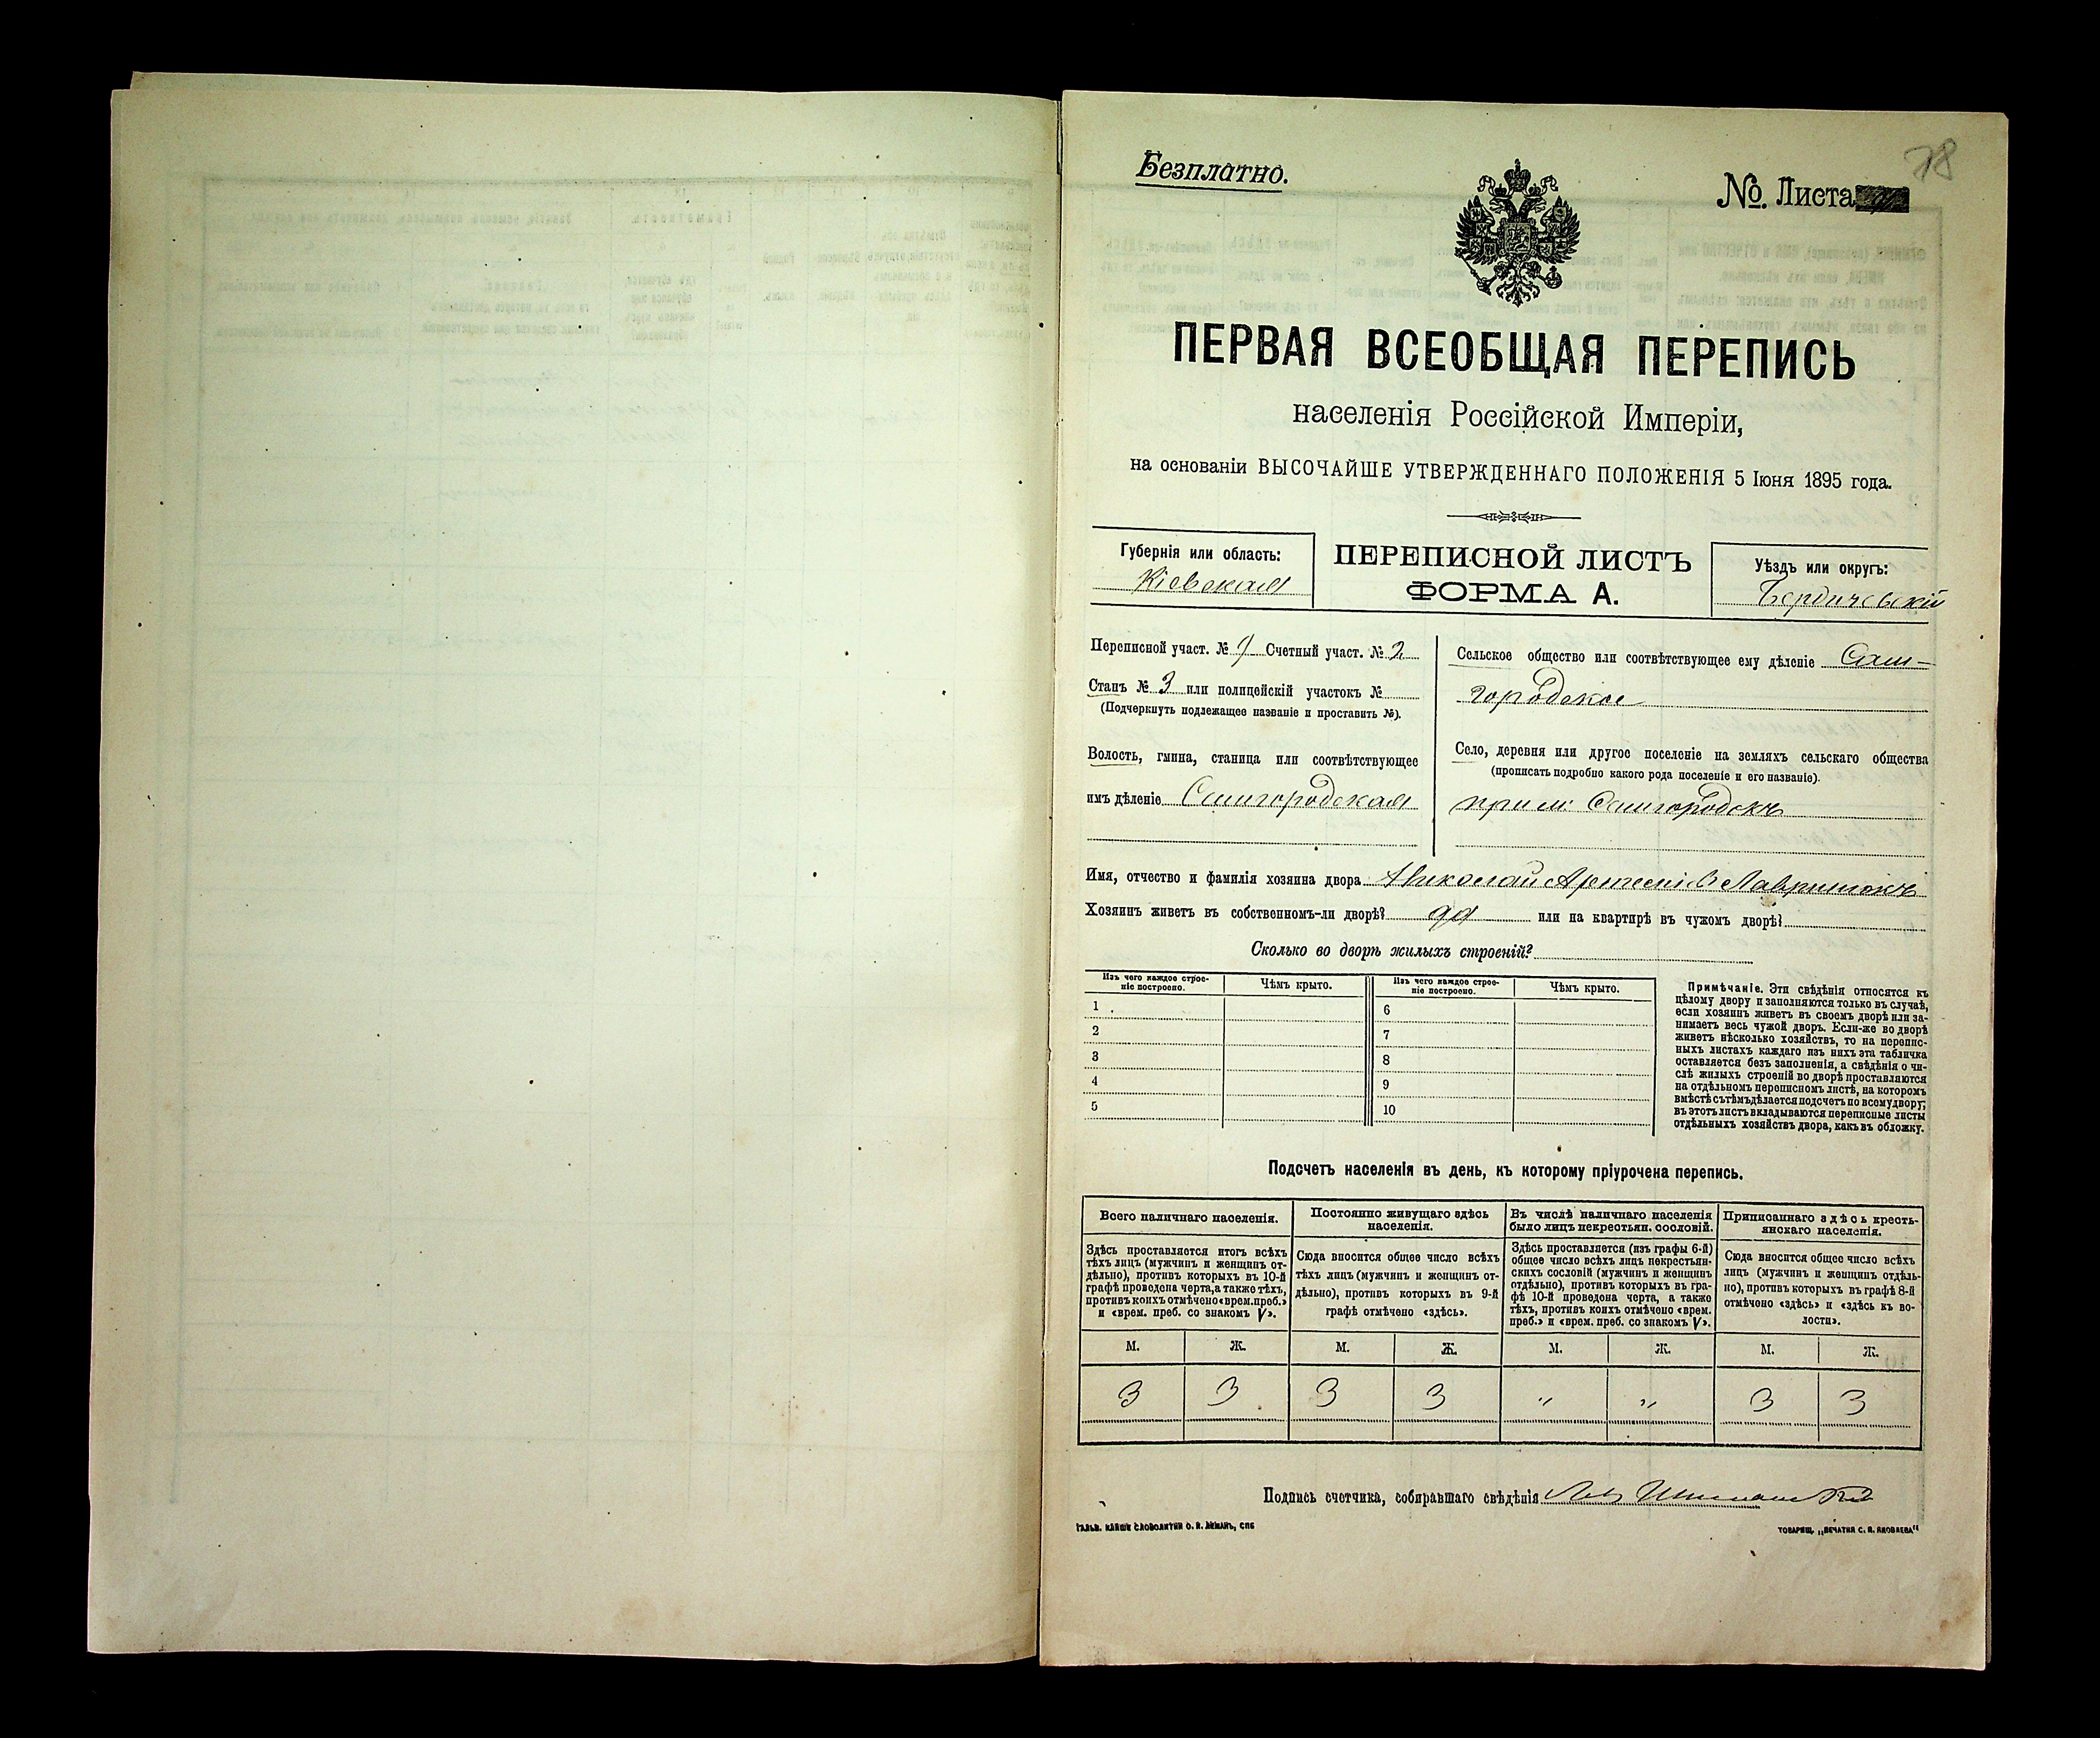 78
Безплатно.
№. Листа
ПЕРВАЯ ВСЕОБЩАЯ ПЕРЕПИСЬ
населенія Россійской Имперіи,
на основаніи ВЫСОЧАЙШЕ УТВЕРЖДЕННАГО ПОЛОЖЕНІЯ 5 Іюня 1895 года.
Губернія или область:
Кіевская
ПЕРЕПИСНОЙ ЛИСТЪ
ФОРМА А.
Уѣздъ или округъ:
Бердичевскій
Переписной участ. № Счетный участ. № 2
Станъ № 3 или полицейскій участокъ №
(Подчеркнуть подлежащее названіе и проставить №).
Волость, гмина, станица или соотвѣтствующее
имъ дѣленіе Самгородская
Сельское общество или соотвѣтствующее ему дѣленіе Сам-
городское
Село, деревня или другое поселеніе на земляхъ сельскаго общества
(прописать подробно какого рода поселеніе и его названіе).
Самгородокъ
Имя, отчество и фамилія хозяина двора Николай Артеміевъ
Хозяинъ живетъ въ собственномъ-ли дворѣ? да или на квартирѣ въ чужомъ дворѣ?
Сколько во дворѣ жилыхъ строеній?
Изъ чего каждое строе-
ніе построено.
Чѣмъ крыто.
Изъ чего каждое строе-
ніе построено.
Чѣмъ крыто.
1 6
2 7
3 8
4 9
5 10
Примѣчаніе. Эти свѣдѣнія относятся къ
цѣлому двору и заполняются только въ случаѣ,
если хозяинъ живетъ въ своемъ дворѣ или за-
нимаетъ весь чужой дворъ. Если-же во дворѣ
живетъ нѣсколько хозяйствъ, то на перепис-
ныхъ листахъ каждаго изъ нихъ эта табличка
оставляется безъ заполненія, а свѣдѣнія о чи-
слѣ жилыхъ строеній во дворѣ проставляются
на отдѣльномъ переписномъ листѣ, на которомъ
вмѣстѣ съ тѣмъ дѣлается подсчетъ по всему двору;
въ этотъ листъ вкладываются переписные листы
отдѣльныхъ хозяйствъ двора, какъ въ обложку.
Подсчетъ населенія въ день, къ которому пріурочена перепись.
Всего наличнаго населенія.
Здѣсь проставляется итогъ всѣхъ
тѣхъ лицъ (мужчинъ и женщинъ от-
дѣльно), противъ которыхъ въ 10-й
графѣ проведена черта, а также тѣхъ,
противъ коихъ отмѣчено «врем. преб.»
и «врем. преб. со знакомъ V».
Постоянно живущаго здѣсь
населенія.
Сюда вносится общее число всѣхъ
тѣхъ лицъ (мужчинъ и женщинъ от-
дѣльно), противъ которыхъ въ 9-й
графѣ отмѣчено «здѣсь».
Въ числѣ наличнаго населенія
было лицъ некрестьян. сословій.
Здѣсь проставляется (изъ графы 6-й)
общее число всѣхъ лицъ некрестьян-
скихъ сословій (мужчинъ и женщинъ
отдѣльно), противъ которыхъ въ гра-
фѣ 10-й проведена черта, а также
тѣхъ, противъ коихъ отмѣчено «врем.
преб.» и «врем. преб. со знакомъ V».
Приписаннаго здѣсь кресть-
янскаго населенія.
Сюда вносится общее число всѣхъ
лицъ (мужчинъ и женщинъ отдѣль-
но), противъ которыхъ въ графѣ 8-й
отмѣчено «здѣсь» и «здѣсь къ во-
лости».
М. Ж. М. Ж. М. Ж. М. Ж.
3 3 3 3 " " 3 3
Подпись счетчика, собиравшаго свѣдѣнія
ГАЛЬВ. КЛИШЕ СЛОВОЛИТНИ О. И. ЛЕМАНЪ, СПБ
ТОВАРИЩ. „ПЕЧАТНЯ С. П. ЯКОВЛЕВА"